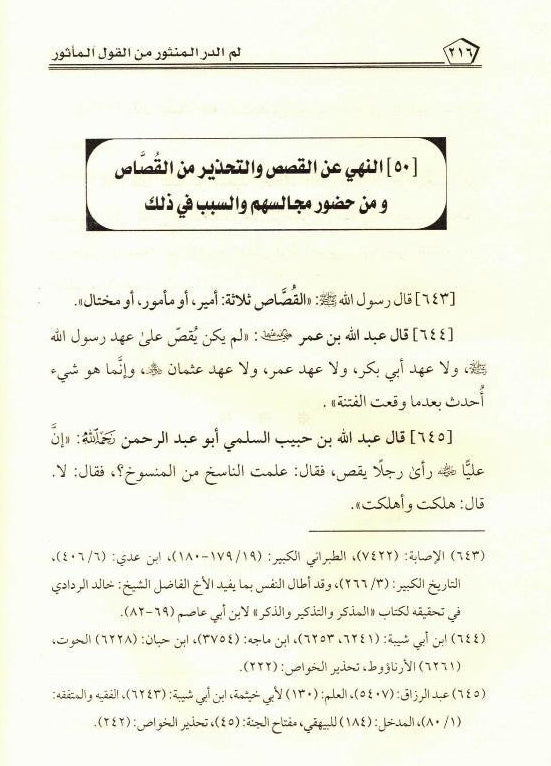 ٢١٦
لم الدر المنثور من القول المأثور
[٥٠] النهي عن القصص والتحذير من القُصَّاص
ومن حضور مجالسهم والسبب في ذلك
[٦٤٣] قال رسول الله ﷺ: «القُصَّاص ثلاثة: أمير، أو مأمور، أو مختال».
[٦٤٤] قال عبد الله بن عمر رضي الله عنهما: «لم يكن يُقصّ علىٰ عهد رسول الله
ﷺ، ولا عهد أبي بكر، ولا عهد عمر، ولا عهد عثمان رضي الله عنهم، وإنَّما هو شيء
أُحدث بعدما وقعت الفتنة».
[٦٤٥] قال عبد الله بن حبيب السلمي أبو عبد الرحمن رحمه الله: «إنَّ
عليًّا رضي الله عنه رأىٰ رجلًا يقص، فقال: علمت الناسخ من المنسوخ؟، فقال: لا.
قال: هلكت وأهلكت».
(٦٤٣) الإصابة: (٧٤٢٢)، الطبراني الكبير: (١٧٩/١٩-١٨٠)، ابن عدي: (٤٠٦/٦)،
التاريخ الكبير: (٢٦٦/٣)، وقد أطال النفس بما يفيد الأخ الفاضل الشيخ: خالد الردادي
في تحقيقه لكتاب «المذكر والتذكير والذكر» لابن أبي عاصم (٦٩-٨٢).
(٦٤٤) ابن أبي شيبة: (٦٢٤١، ٦٢٥٣)، ابن ماجه: (٣٧٥٤)، ابن حبان: (٦٢٢٨) الحوت،
(٦٢٦١) الأرناؤوط، تحذير الخواص: (٢٢٢).
(٦٤٥) عبد الرزاق: (٥٤٠٧)، العلم: (١٣٠) لأبي خيثمة، ابن أبي شيبة: (٦٢٤٣)، الفقيه والمتفقه:
(٨٠/١)، المدخل: (١٨٤) للبيهقي، مفتاح الجنة: (٤٥)، تحذير الخواص: (٢٤٢).